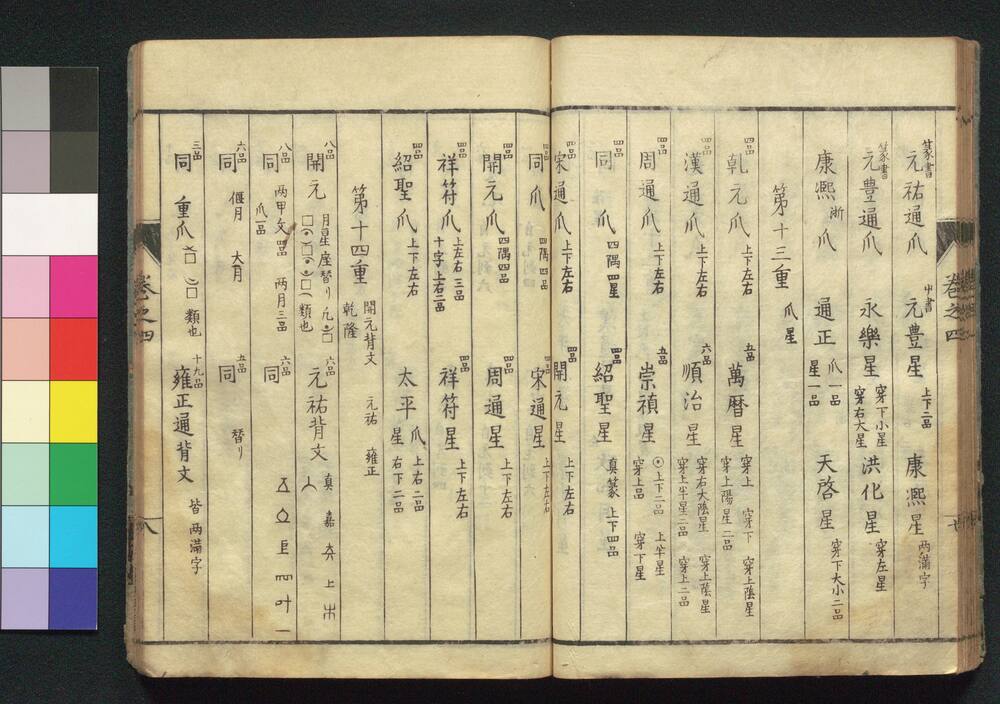 篆書 元祐通爪 中書 元豊星 上下二品 康熙星 両満字
篆書 元豊通爪 永樂星 穿下小星 穿右大星 洪化星 穿左星
康熙 浙 爪 通正 爪一品 星一品 天啓星 穿下大小二品
第十三重 爪星
四品 乾元爪 上下左右 五品 萬暦星 穿上 穿下 穿上陰星 穿上陽星二品
四品 漢通爪 上下左右 六品 順治星 穿右大陰星 穿上陰星 穿上半星二品 穿上二品
四品 周通爪 上下左右 五品 崇禎星 上下二品 上半星 穿上品 穿下星
四品 同爪 四隅四星 四品 紹聖星 真篆 上下四品
四品 宋通爪 上下左右 四品 開元星 上下左右
四品 同爪 四隅四品 四品 宋通星 上下左右
四品 開元爪 四隅四品 四品 周通星 上下左右
四品 祥符爪 上左右三品 十字上右二品 四品 祥符星 上下左右
四品 紹聖爪 上下左右 太平 爪 上右二品 星 右下二品
第十四重 開元背文 元祐 雍正 乾隆
八品 開元 月星座替り 類也 六品 元祐背文 真 嘉 上
八品 同 両甲文四品 両月三品 爪一品 六品 同
六品 同 偃月 大月 五品 同 替り
三品 同 重爪 類也 十九品 雍正通背文 皆両満字
巻之四
巻之四 八